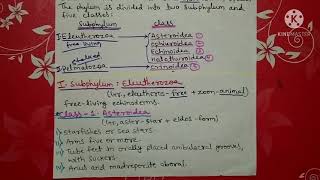 The phylum is divided into two subphylum and
five classes:
Subphylum class
I-Eleutherozoa Asteroidea 1
free living ophiuroidea 2
Echinoidea 3
stalked holothuroidea 4
II-Pelmatozoa Crinoidea 5
I- Subphylum: Eleutherozoa
(Gr., eleutheris-free + zoon-animal)
free-living echinoderms.
Class-1- Asteroidea
(Gr., aster-star + eidos-form)
i) starfishes or sea stars.
ii) Arms five or more.
iii) Tube feet in orally placed ambulacral grooves,
with suckers.
iv) Anus and madreporite aboral.
KINEMASTER